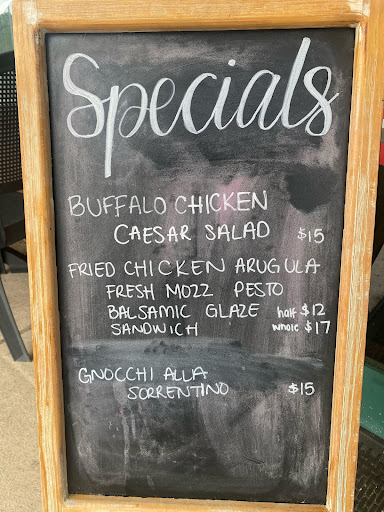 Specials
BUFFALO CHICKEN
CAESAR SALAD $15
FRIED CHICKEN ARUGULA
FRESH MOZZ PESTO
BALSAMIC GLAZE half $12
SANDWICH whole $17
GNOCCHI ALLA
SORRENTINO $15